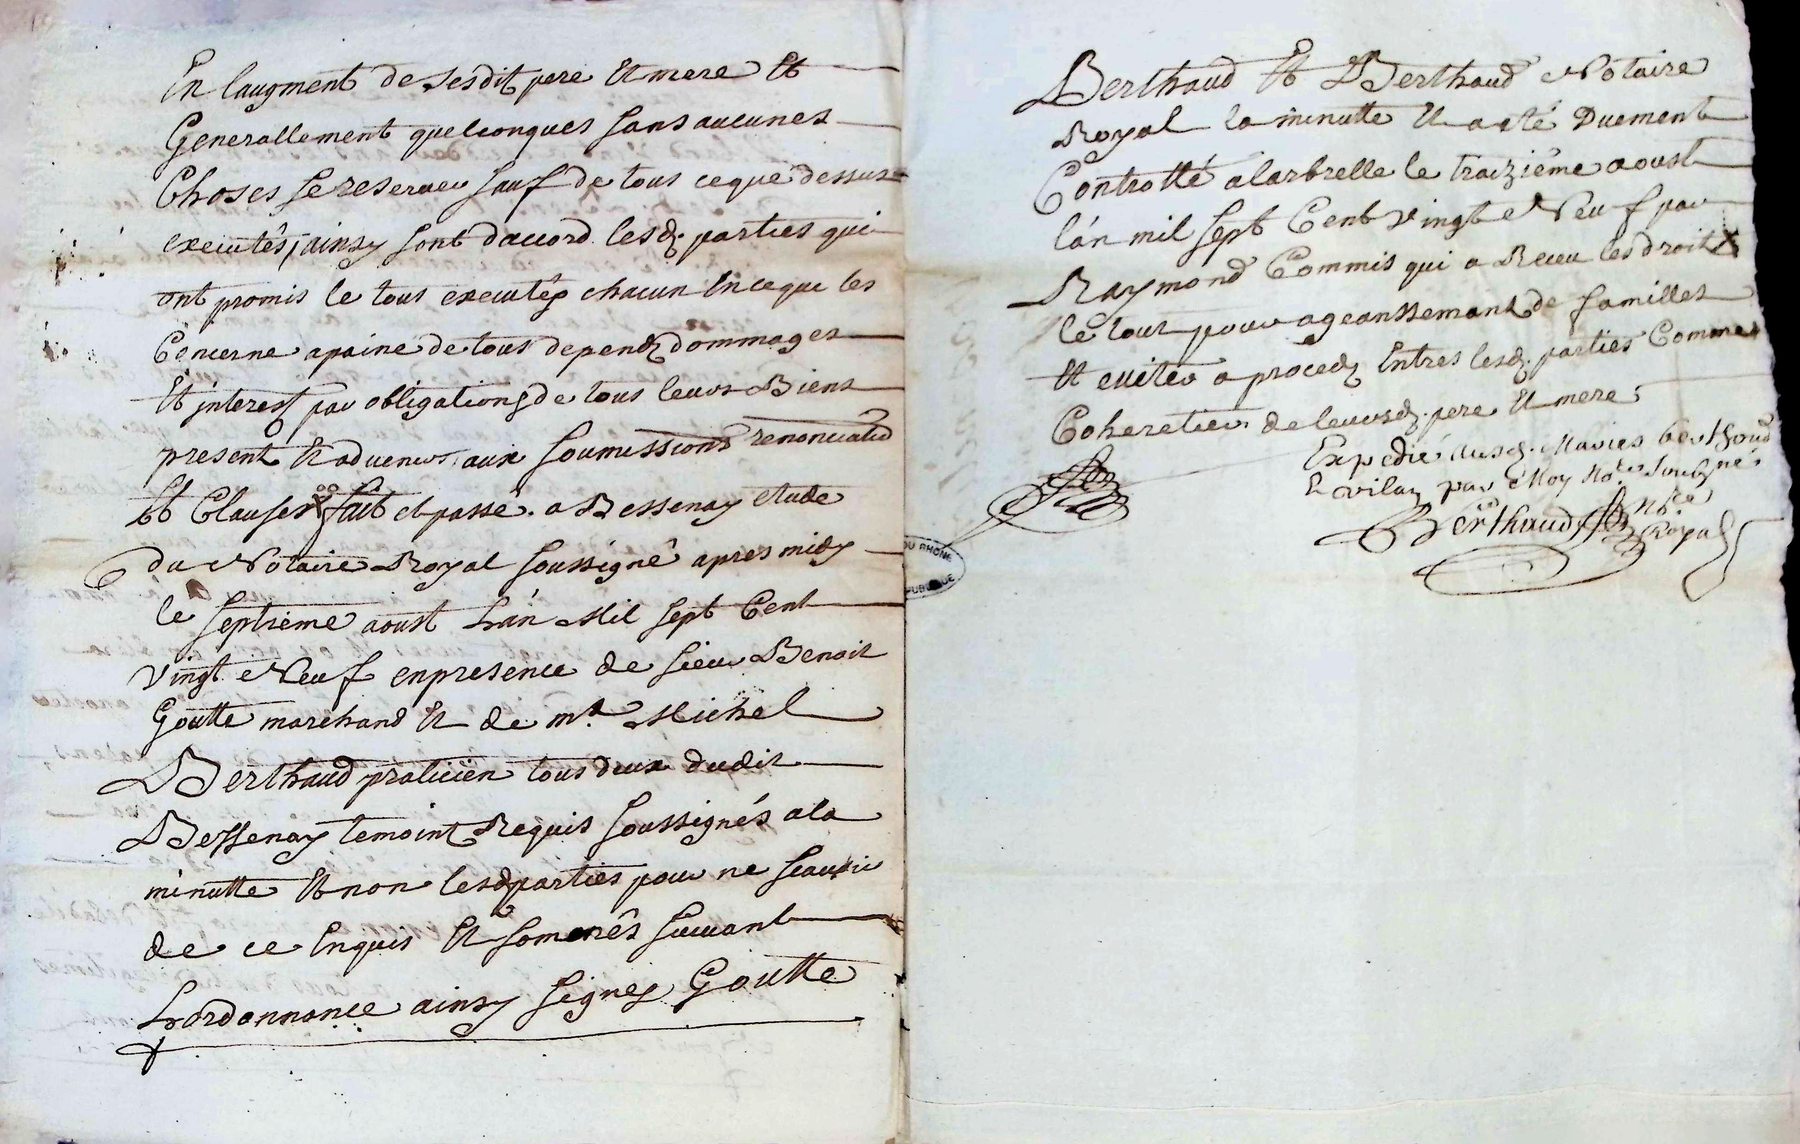 En laugment de sesdit pere et mere et
Generallement quelconques sans aucunes
Choses se reserver sauf de tous ceque dessus
executés, ainsy sont daccord lesd. parties qui
ont promis le tous executés chacun en ce que les
Concerne apaine de tous depend dommages
et jnterest par obligations de tous leurs Biens
present et advenir, aux soumissions renonciatio
et Clauses fait et passé a Bessenay etude
du Notaire Royal soussigné apres midy
le septieme aoust Lán Mil sept Cent
vingt Neuf en presence de sieur Benoit
Goutte marchand et de me. Michel
Berthaud praticien tous deux dudit
Bessenay temoint Requis soussignés a la
minutte et non lesd parties pour ne scavoir
de ce Enquis et somenés suivant
Lordonnance ainsy signés Goutte
Berthaud et Berthaud Notaire
Royal la minutte et a eté Duement
Controllé a larbrelle le traiziéme aoust
lán mil sept Cent vingt Neuf par
Raymond Commis qui a Receu les droits
le tout pour ageanssemant de familles
et eviter a proced Entres lesd. parties Comme
Coheretiers de leursd. pere et mere
Expedié ausd. Maries berthaud
par Moy No.re sousigné
Berthaud Nre
Royal
DU RHONE